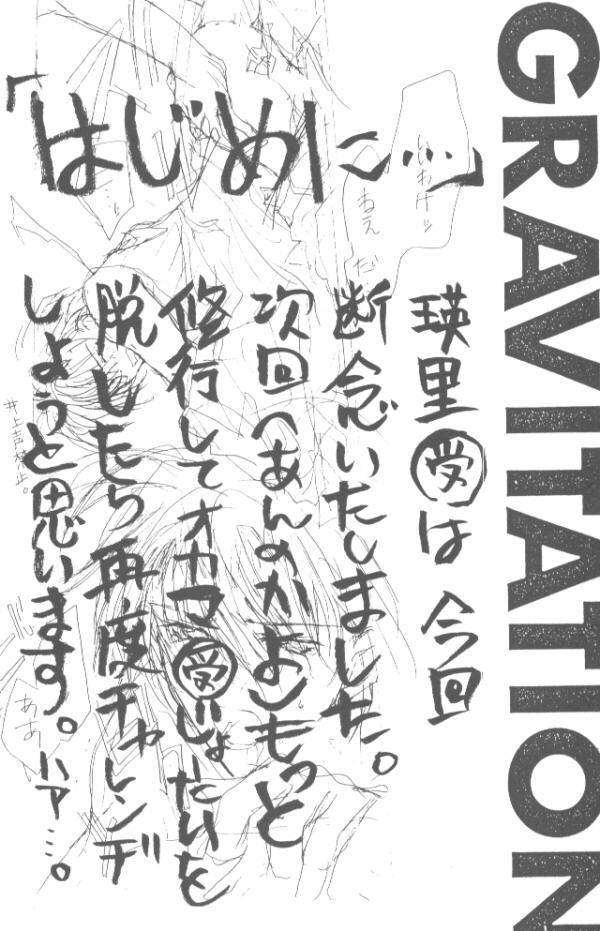 GRAVITATION
「はじめに…」
瑛里㊌は 今回
断念いたしました。
次回(あんのかよ)もっと
修行してオカマ受じょーたいを
脱したら再度チャレンヂ
しようと思います。ハァ…。
井上声禁止。
ねえ
だ
ああ